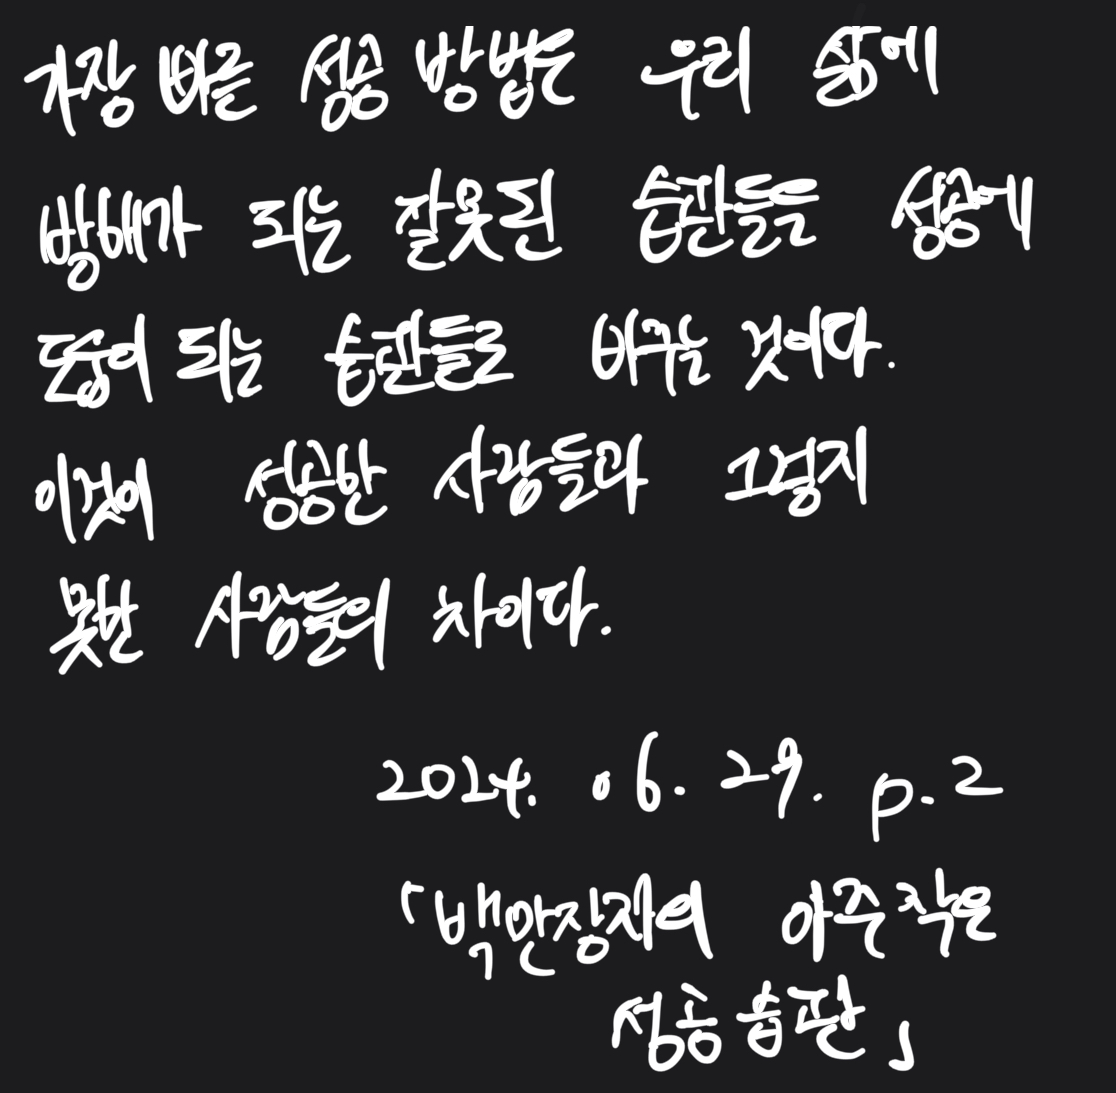 가장 빠른 성공 방법은 우리 삶에
방해가 되는 잘못된 습관들을 성공에
도움이 되는 습관들로 바꾸는 것이다.
이것이 성공한 사람들과 그렇지
못한 사람들의 차이다.
2024. 06. 29. p. 2
「백만장자의 아주 작은
성공 습관」